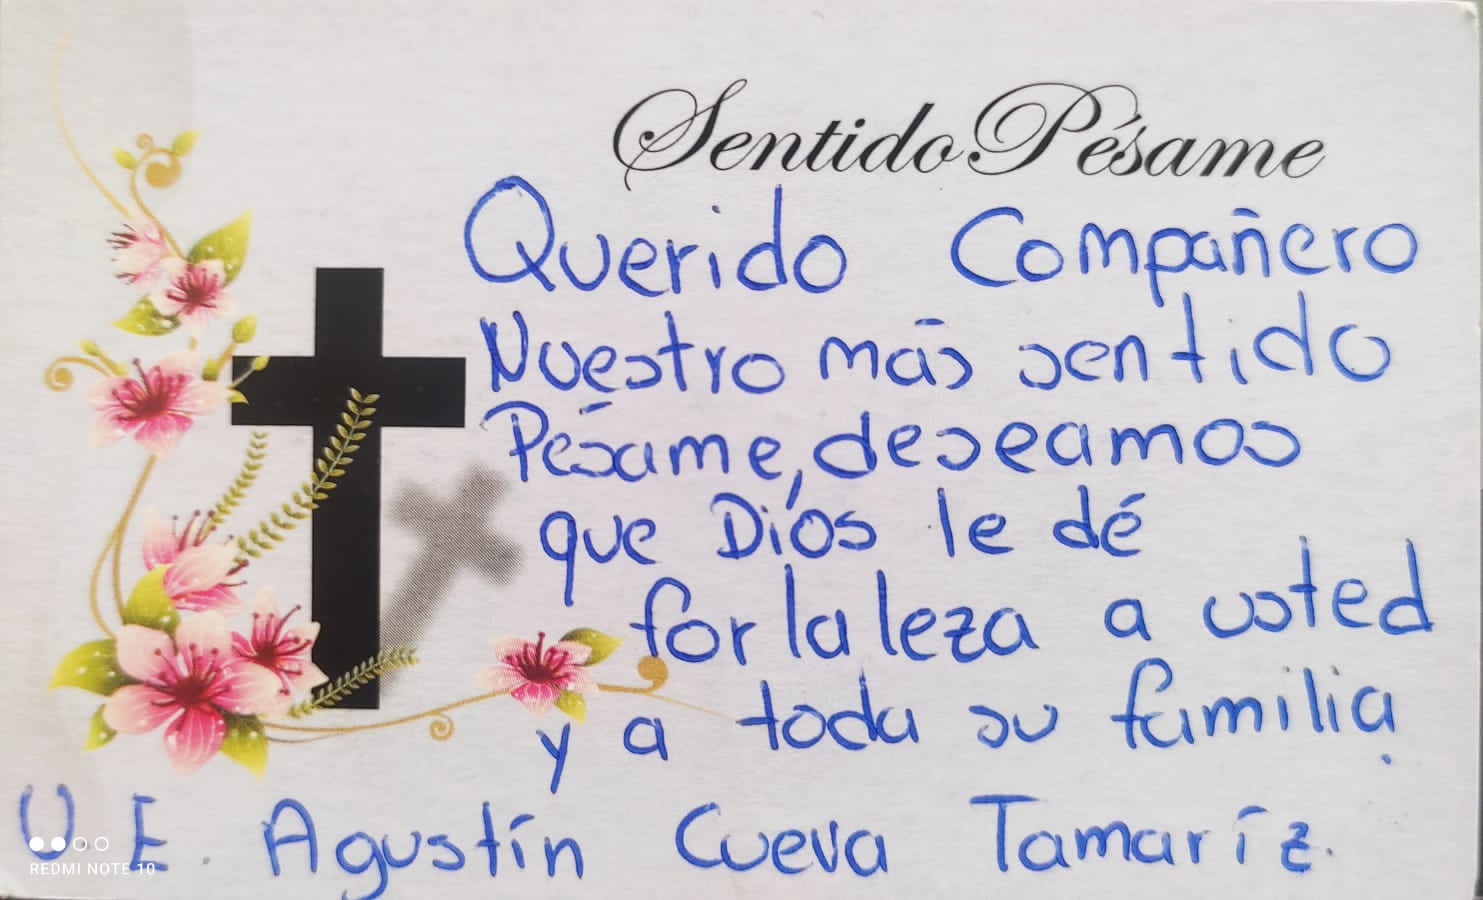 Sentido Pésame
Querido Compañero
Nuestro más sentido
Pésame, deseamos
que Díos le dé
fortaleza a usted
y a toda su familia.
U.E. Agustín Cueva Tamaríz.
REDMI NOTE 10